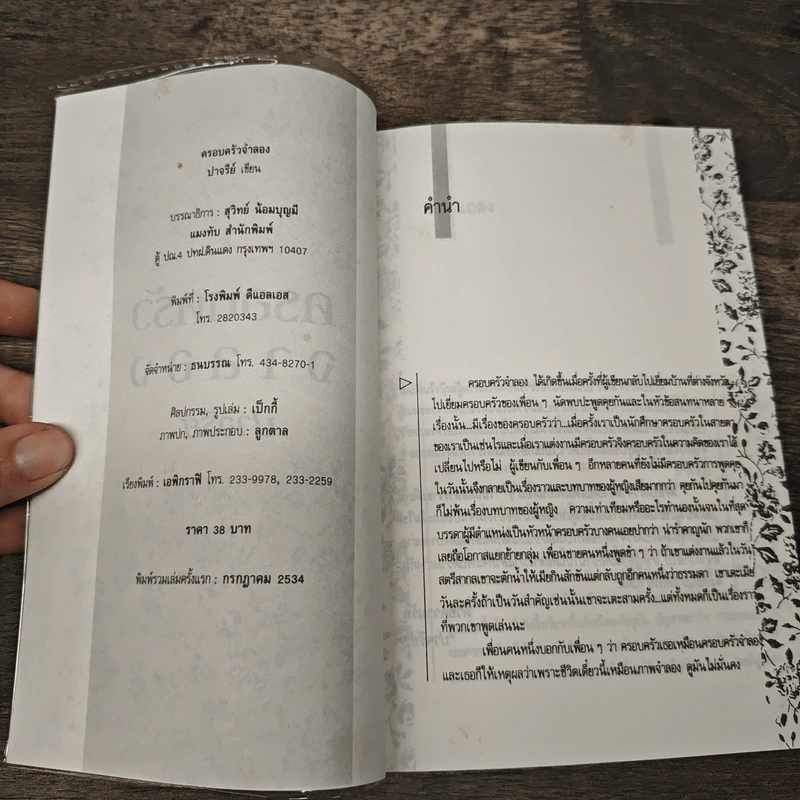 ครอบครัวจำลอง
ปาจรีย์ เขียน
บรรณาธิการ : สุวิทย์ น้อมบุญมี
แมงทับ สำนักพิมพ์
ตู้ ปณ.4 ปทฝ.ดินแดง กรุงเทพฯ 10407
พิมพ์ที่ : โรงพิมพ์ ดีแอลเอส
โทร. 2820343
จัดจำหน่าย : ธนบรรณ โทร. 434-8270-1
ศิลปกรรม, รูปเล่ม : เป็กกี้
ภาพปก, ภาพประกอบ : ลูกตาล
เรียงพิมพ์ : เอพิกราฟิ โทร. 233-9978, 233-2259
ราคา 38 บาท
พิมพ์รวมเล่มครั้งแรก : กรกฎาคม 2534
คำนำ
ครอบครัวจำลอง ได้เกิดขึ้นเมื่อครั้งที่ผู้เขียนกลับไปเยี่ยมบ้านที่ต่างจังหวัด
ไปเยี่ยมครอบครัวของเพื่อน ๆ นัดพบปะพูดคุยกันและในหัวข้อสนทนาหลาย
เรื่องนั้น...มีเรื่องของครอบครัวว่า...เมื่อครั้งเราเป็นนักศึกษาครอบครัวในสายตา
ของเราเป็นเช่นไรและเมื่อเราแต่งงานมีครอบครัวจริงครอบครัวในความคิดของเราได้
เปลี่ยนไปหรือไม่ ผู้เขียนกับเพื่อน ๆ อีกหลายคนที่ยังไม่มีครอบครัวการพูดคุย
ในวันนั้นจึงกลายเป็นเรื่องราวและบทบาทของผู้หญิงเสียมากกว่า คุยกันไปคุยกันมา
ก็ไม่พ้นเรื่องบทบาทของผู้หญิง ความเท่าเทียมหรืออะไรทำนองนั้นจนในที่สุด
บรรดาผู้มีตำแหน่งเป็นหัวหน้าครอบครัวบางคนเอยปากว่า น่ารำคาญนัก พวกเขาก็
เลยถือโอกาสแยกย้ายกลุ่ม เพื่อนชายคนหนึ่งพูดขำ ๆ ว่า ถ้าเขาแต่งงานแล้วในวัน
สตรีสากลเขาจะตักน้ำให้เมียกินสักขันแต่กลับถูกอีกคนหนึ่งว่าธรรมดา เขาเตะเมีย
วันละครั้งถ้าเป็นวันสำคัญเช่นนั้นเขาจะเตะสามครั้ง...แต่ทั้งหมดก็เป็นเรื่องราว
ที่พวกเขาพูดเล่นนะ
เพื่อนคนหนึ่งบอกกับเพื่อน ๆ ว่า ครอบครัวเธอเหมือนครอบครัวจำลอง
และเธอก็ให้เหตุผลว่าเพราะชีวิตเดี๋ยวนี้เหมือนภาพจำลอง ดูมันไม่มั่นคง